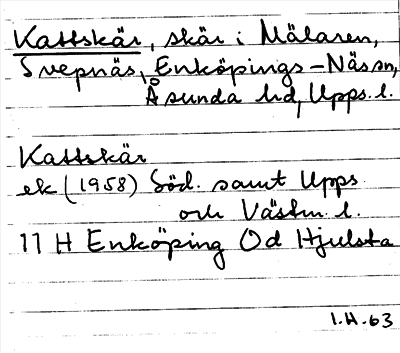 Kattskär, skär i Mälaren,
Svepnäs, Enköpings-Näs sn,
Åsunda hd, Upps. l.
Kattskär
ek (1958) Söd. samt Upps
och Västm. l.
11 H Enköping Od Hjulsta
I.H.63